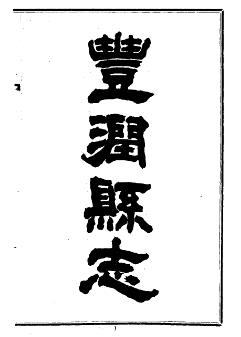 豐潤縣志